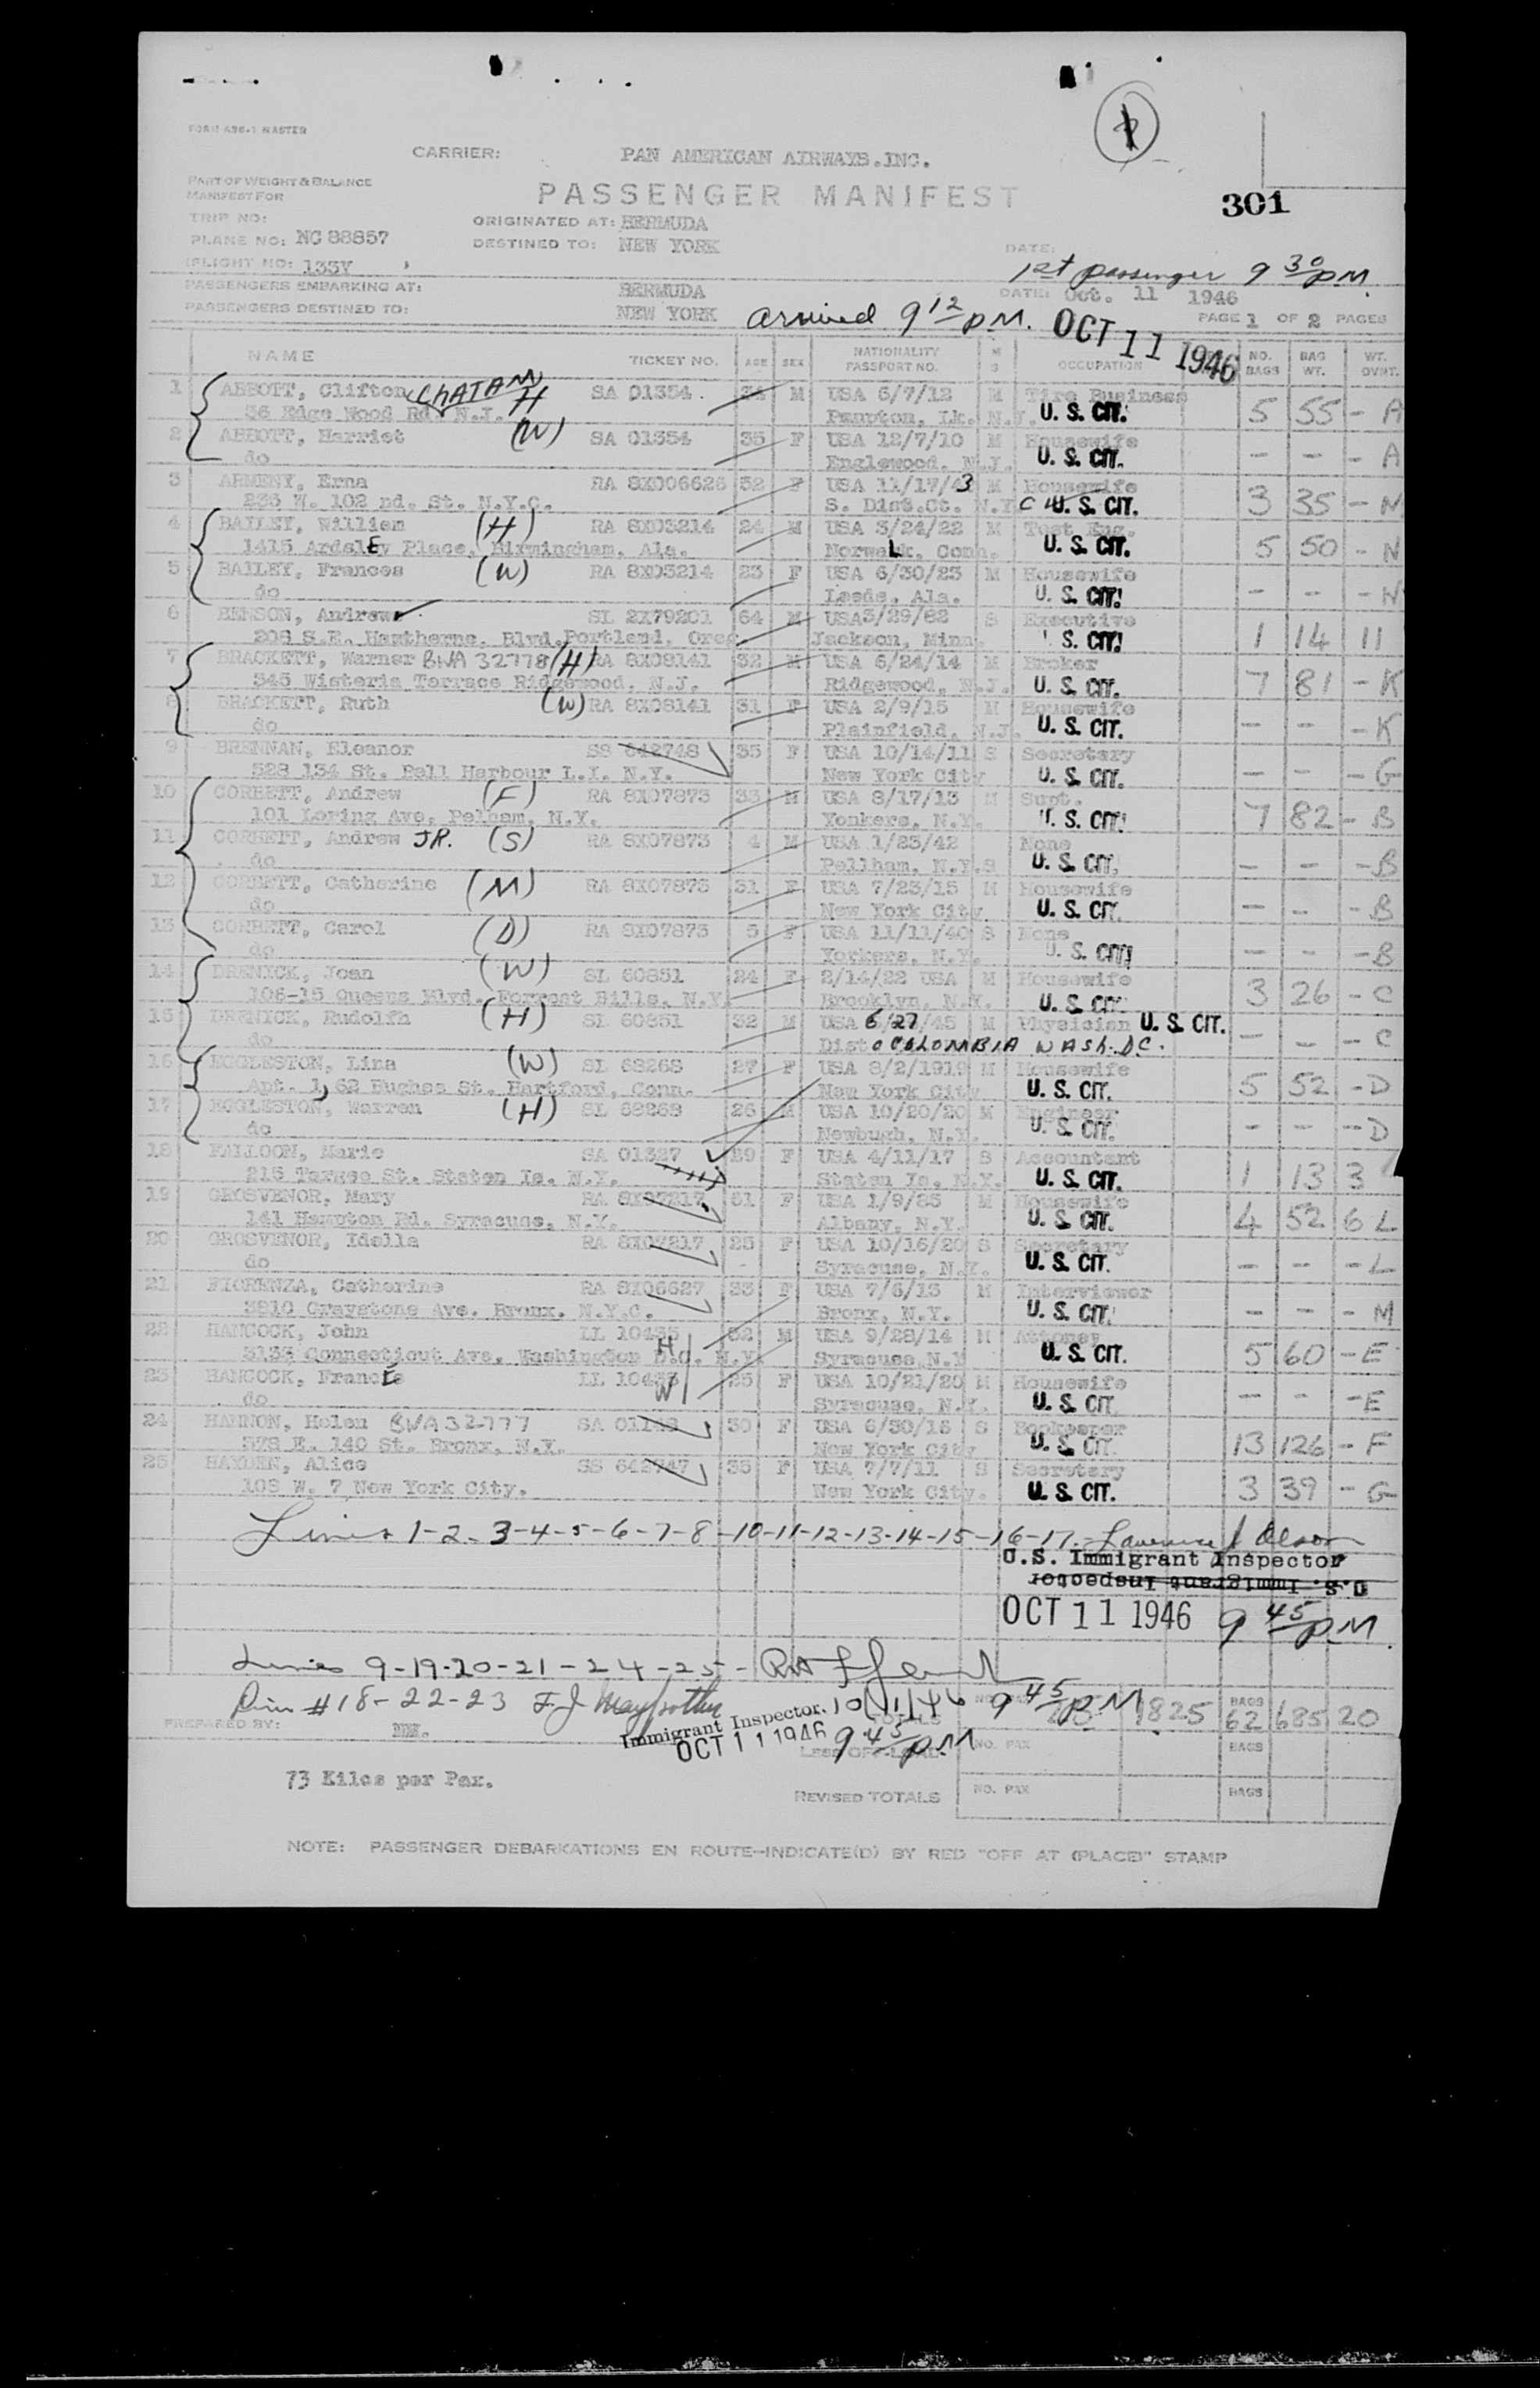 FORM 496-1 MASTER
CARRIER: PAN AMERICAN AIRWAYS.INC.
PART OF WEIGHT & BALANCE
MANIFEST FOR
PASSENGER MANIFEST
301
TRIP NO:
ORIGINATED AT: BERMUDA
PLANE NO: NC 88857
DESTINED TO: NEW YORK
DATE:
FLIGHT NO: 133Y
1st passenger 9 30 PM
PASSENGERS EMBARKING AT: BERMUDA
DATE: Oct. 11 1946
PASSENGERS DESTINED TO: NEW YORK arrived 9 12 PM. OCT 11 1946
PAGE 1 OF 2 PAGES
NAME TICKET NO. AGE SEX NATIONALITY PASSPORT NO. M S OCCUPATION NO. BAGS BAG WT. WT. OVWT.
1 ABBOTT, Clifton CHATAM H SA 01354 34 M USA 6/7/12 M Tire Business 5 55 - A
36 Edge Wood Rd. N.J. Pampton, Lk. N.J. U. S. CIT.
2 ABBOTT, Harriet (W) SA 01354 35 F USA 12/7/10 M Housewife - - - A
do Englewood, N.J. U. S. CIT.
3 ARMENY, Erna RA 8X006626 52 F USA 11/17/43 M Housewife 3 35 - N
235 W. 102 nd. St. N.Y.C. S. Dist.Ct. N.Y.C U. S. CIT.
4 BAILEY, William (H) RA 8X03214 24 M USA 3/24/22 M Test Eng. 5 50 - N
1415 Ardsley Place, Birmingham, Ala. Norwalk, Conn. U. S. CIT.
5 BAILEY, Frances (W) RA 8X03214 23 F USA 6/30/23 M Housewife - - - N
do Leeds, Ala. U. S. CIT.
6 BENSON, Andrew SL 2X79201 64 M USA 3/29/82 S Executive 1 14 11
208 S.E. Hawthorne, Blvd. Portland, Ore. Jackson, Minn. U. S. CIT.
7 BRACKETT, Warner BWA 32778 (H) RA 8X08141 32 M USA 6/24/14 M Broker 7 81 - K
545 Wisteria Terrace Ridgewood, N.J. Ridgewood, N.J. U. S. CIT.
8 BRACKETT, Ruth (W) RA 8X08141 31 F USA 2/9/15 M Housewife - - - K
do Plainfield, N.J. U. S. CIT.
9 BRENNAN, Eleanor SS 642748 35 F USA 10/14/11 S Secretary - - - G
528 134 St. Bell Harbour L.I. N.Y. New York City U. S. CIT.
10 CORBETT, Andrew (F) RA 8X07873 33 M USA 8/17/13 M Supt. 7 82 - B
101 Loring Ave, Pelham, N.Y. Yonkers, N.Y. U. S. CIT.
11 CORBETT, Andrew JR. (S) RA 8X07873 4 M USA 1/23/42 None - - - B
do Pellham, N.Y. S U. S. CIT.
12 CORBETT, Catherine (M) RA 8X07873 31 F USA 7/23/15 M Housewife - - - B
do New York City U. S. CIT.
13 CORBETT, Carol (D) RA 8X07873 5 F USA 11/11/40 S None - - - B
do Yorkers, N.Y. U. S. CIT.
14 DRENICK, Joan (W) SL 60851 24 F 2/14/22 USA M Housewife 3 26 - C
106-15 Queens Blvd. Forrest Hills, N.Y. Brooklyn, N.Y. U. S. CIT.
15 DRENICK, Rudolfh (H) SL 60851 32 M USA 6/27/45 M Physician U. S. CIT. - - - C
do Dist OCOLOMBIA WASH. DC.
16 EGGLESTON, Lina (W) SL 68268 27 F USA 8/2/1919 M Housewife 5 52 - D
Apt. 1, 62 Hughes St. Hartford, Conn. New York City U. S. CIT.
17 EGGLESTON, Warren (H) SL 68268 26 M USA 10/20/20 M Engineer - - - D
do Newbugh, N.Y. U. S. CIT.
18 FALLOON, Marie SA 01327 29 F USA 4/11/17 S Accountant 1 13 3
215 St. Staten Is. N.Y. Staten Is. N.Y. U. S. CIT.
19 GROSVENOR, Mary RA 8X07217 61 F USA 1/9/85 M Housewife 4 52 6 L
141 Hampton Rd. Syracuse, N.Y. Albany, N.Y. U. S. CIT.
20 GROSVENOR, Idella RA 8X07217 25 F USA 10/16/20 S Secretary - - - L
do Syracuse, N.Y. U. S. CIT.
21 FIORENZA, Catherine RA 8X06627 33 F USA 7/6/13 M Interviewer - - - M
3810 Graystone Ave. Bronx. N.Y.C. Bronx, N.Y. U. S. CIT.
22 HANCOCK, John H LL 10433 32 M USA 9/28/14 M Attoney 5 60 - E
3133 Connecticut Ave, Washington D.C. N.Y. Syracuse N.Y U. S. CIT.
23 HANCOCK, Frances W LL 10433 25 F USA 10/21/20 M Housewife - - - E
do Syracuse, N.Y. U. S. CIT.
24 HANNON, Helen BWA 32777 SA 30 F USA 6/30/16 S Bookeeper 13 126 - F
E. 140 St. Bronx, N.Y. New York City U. S. CIT.
25 HAYDEN, Alice SS 642747 35 F USA 7/7/11 S Secretary 3 39 - G
103 W. 7 New York City. New York City. U. S. CIT.
Lines 1-2-3-4-5-6-7-8-10-11-12-13-14-15-16-17- Lawrence J Olson
U.S. Immigrant Inspector
U.S. Immigrant Inspector
OCT 11 1946 9 45 PM.
Lines 9-19-20-21-24-25-
Line # 18-22-23 10/11/46 9 45 PM
Immigrant Inspector.
OCT 11 1946 9 45 PM
PREPARED BY: TOTALS 1825 BAGS 62 685 20
LESS OFF-LOAD NO. PAX BAGS
73 Kilos per Pax.
REVISED TOTALS NO. PAX BAGS
NOTE: PASSENGER DEBARKATIONS EN ROUTE—INDICATE(D) BY RED "OFF AT (PLACE)" STAMP